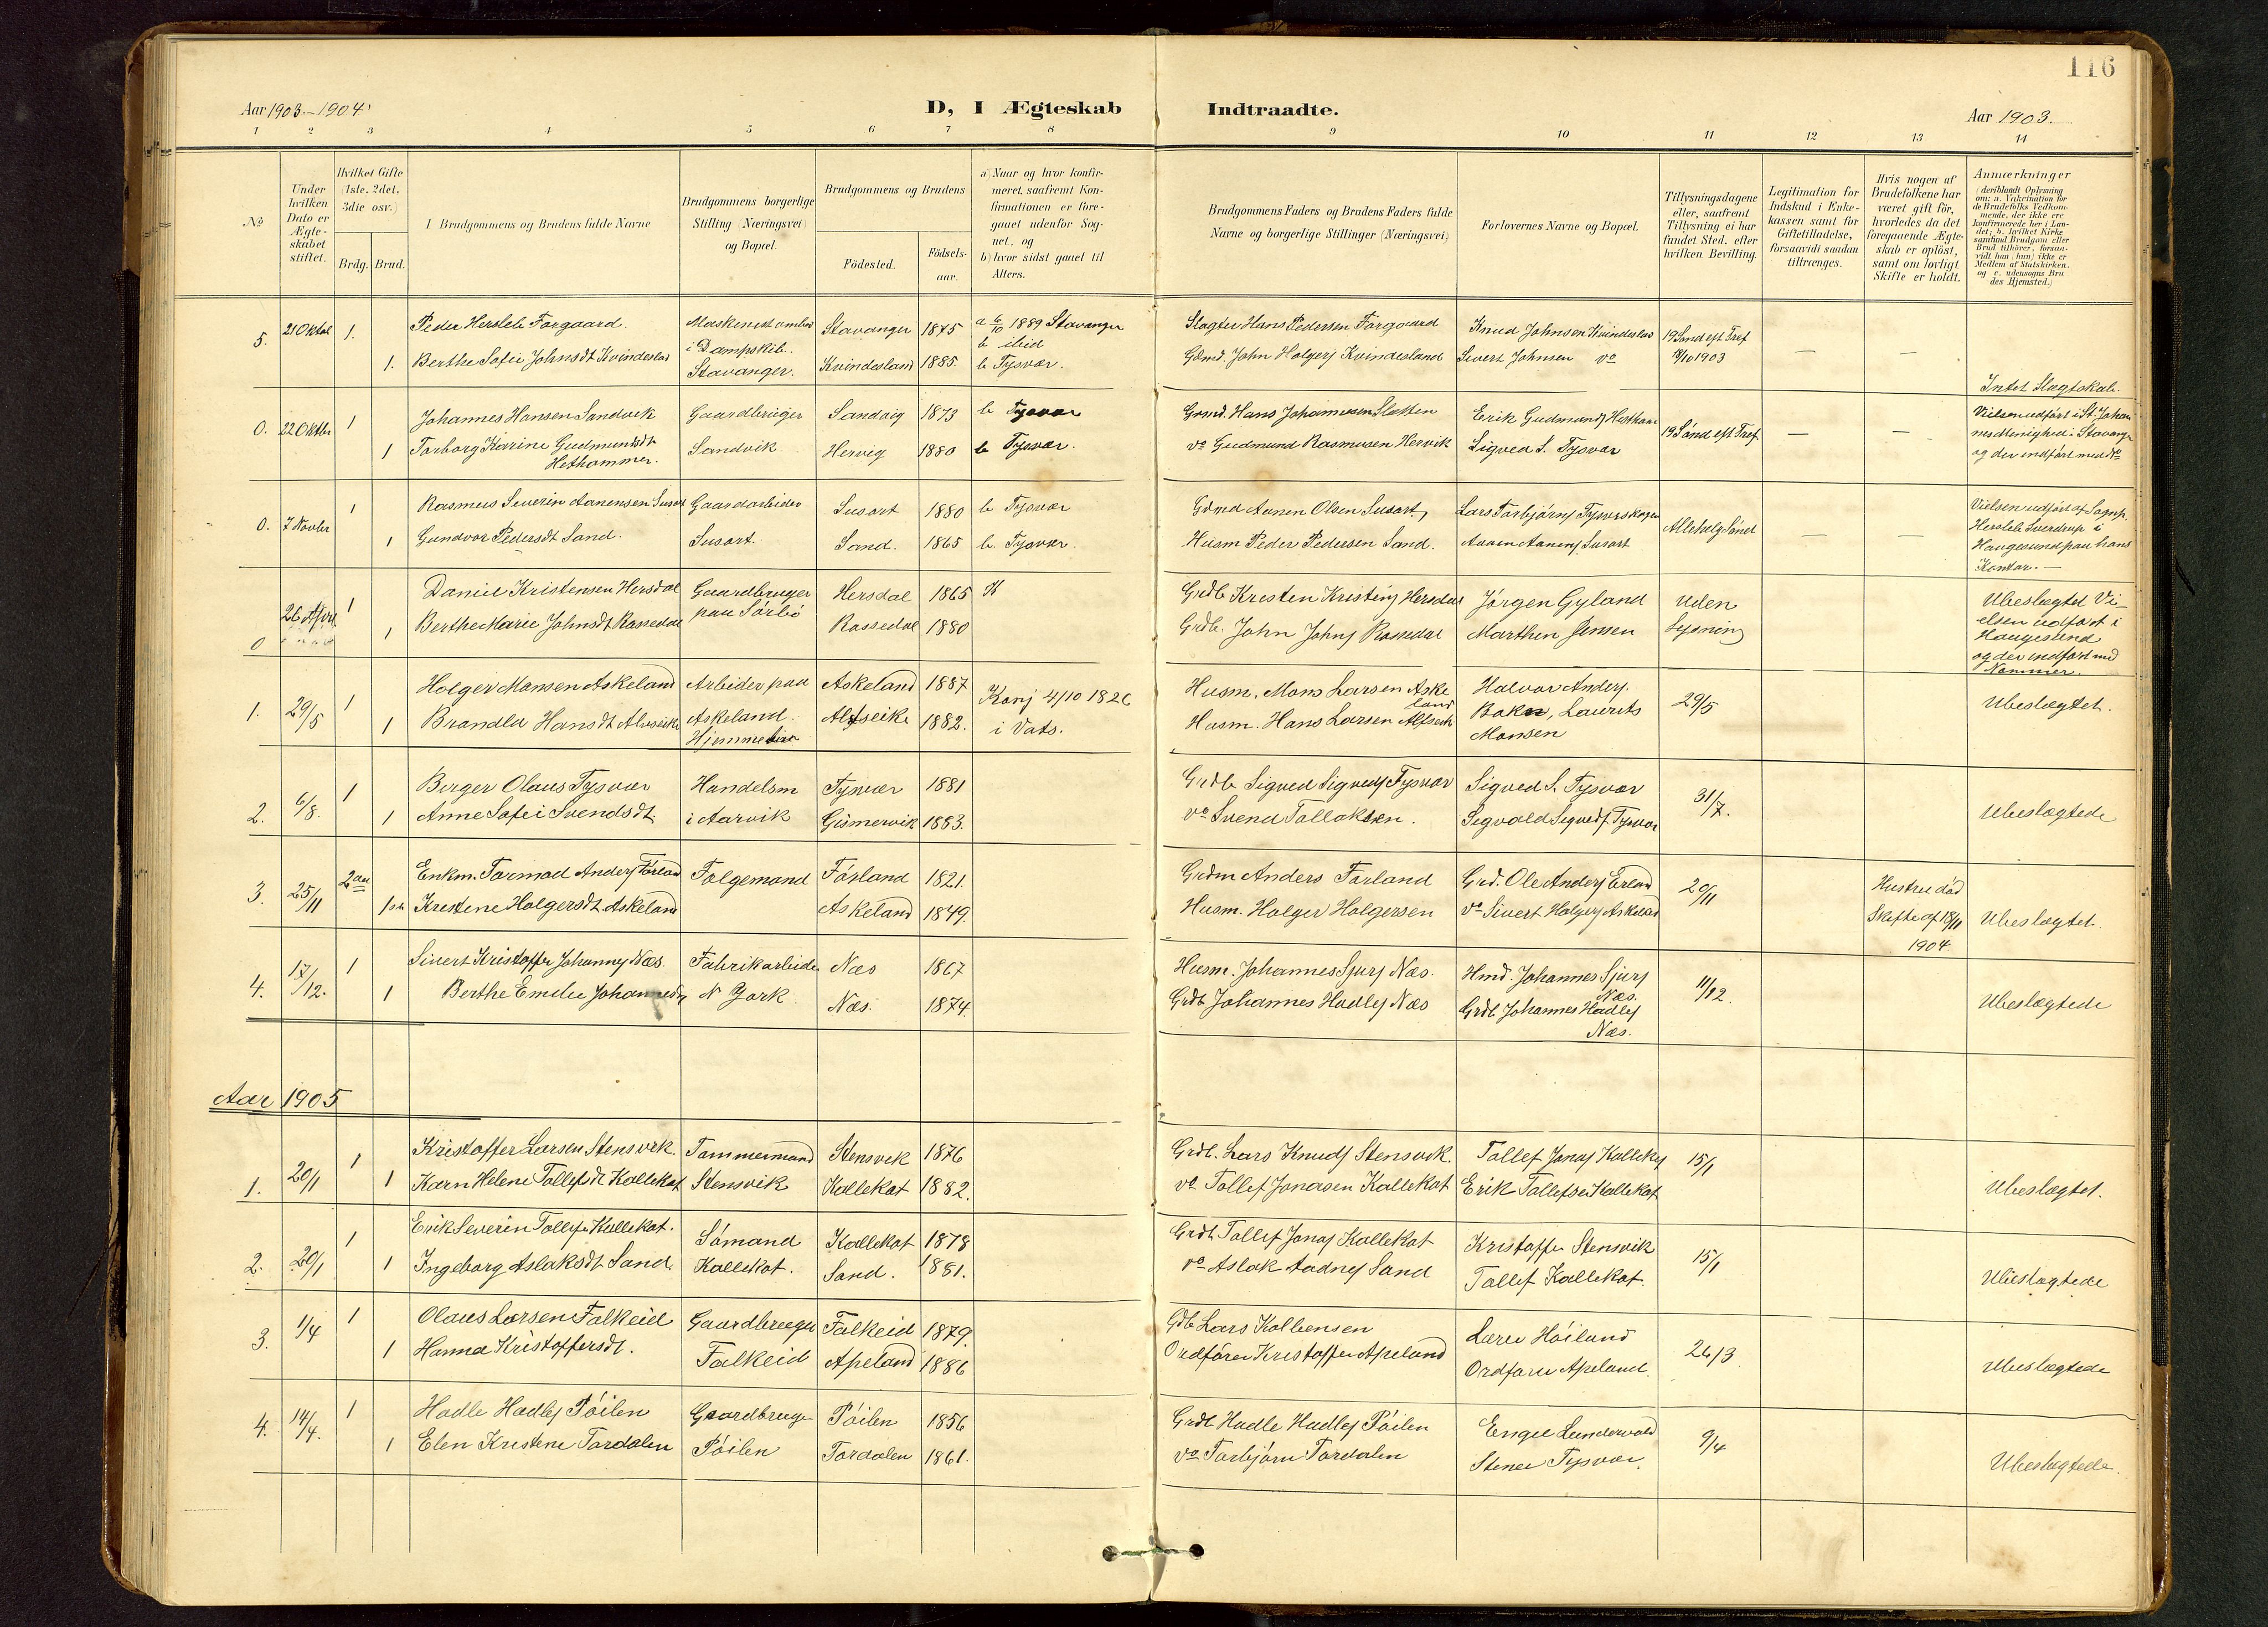 116
Aar 1903.-1904.
D, I Ægteskab
Indtraadte.
Aar 1903.
1 2 3 4 5 6 7 8 9 10 11 12 13 14
No
Under hvilken Dato er Ægteskabet stiftet.
Hvilket Gifte (1ste, 2det, 3die osv.)
Brdg. Brud.
I Brudgommens og Brudens fulde Navne
Brudgommens borgerlige Stilling (Næringsvei) og Bopæl.
Brudgommens og Brudens
Födested.
Födselsaar.
a) Naar og hvor konfirmeret, saafremt Konfirmationen er foregaaet udenfor Sognet, og
b) hvor sidst gaaet til Alters.
Brudgommens Faders og Brudens Faders fulde Navne og borgerlige Stillinger (Næringsvei)
Forlovernes Navne og Bopæl.
Tillysningsdagene eller, saafremt Tillysning ei har fundet Sted, efter hvilken Bevilling.
Legitimation for Indskud i Enkekassen samt for Giftetilladelse, forsaavidt saadan tiltrænges.
Hvis nogen af Brudefolkene har været gift för, hvorledes da det foregaaende Ægteskab er oplöst, samt om lovligt Skifte er holdt.
Anmærkninger (deriblandt Oplysning om: a. Vakcination for de Brudefolks Vedkommende, der ikke ere konfirmerede her i Landet; b. hvilket Kirkesamfund Brudgom eller Brud tilhörer, forsaavidt han (hun) ikke er Medlem af Statskirken. og c. udensogns Brudes Hjemsted.)
5. 21 Oktob 1. Peder Hersleb Forgaard. Maskenist ombord Stavanger 1875 a 6/10 1889 Stavanger Slagter Hans Pedersen Forgaard Knud Johnsen Kvindesland 19 Sønd eft Tref
i Dampskib. b ibid
1. Berthe Sofie Johnsdt Kvindesland Stavanger. Kvindesland 1885. b Tysvær. Gdmd. John Holgers Kvindesland Sivert Johnsen vo 18/10 1903 — —
Intet Slægtskab.
0. 22 Oktbr 1 Johannes Hansen Sandvik Gaardbruger Sandvig 1873 b Tysvær Grmd. Hans Johannesen Sletten Erik Gudmunds Hesthammer 19 Sønd eft Tref. — — Vielsen udført i St. Johannes Menighed i Stavanger og der indført med No
1 Torborg Karine Gudmundsdt Hethammer. Sandvik Hervig 1880 b Tysvær. vo Gudmund Rasmusen Hervik Sigved S. Tysvær
0. 7 Novbr 1 Rasmus Severin Aanensen Susort Gaardarbeider Susort 1880 b Tysvær Gdmd Aanen Olsen Susort, Lars Torbjörns Tysværskogen Allehelg Sønd — — Vielsen udført af Sognp. Hersleb Sverdrup i Haugesund paa hans Kontor.—
1 Gundvor Pedersdt Sand. Susort. Sand. 1865 b. Tysvær. Husm Peder Pedersen Sand. Aanen Aanens Susort
0 26 April 1 Daniel Kristensen Hersdal Gaardbruger Hersdal 1865 Grdb Kresten Kristens Hersdal Jørgen Gyland Uden
1 Berthe Marie Johnsdt Rossedal paa Sørbö Rossedal 1880 Grdb. John Johns Rossedal Marthin Jensen Lysning
Ubeslægtet Vielsen udført i Haugesund og der indført med Nommer.
1. 29/5 1 Holger Monsen Askeland Arbeider paa Askeland 1887 Konf 4/10 1826 Husm. Mons Larsen Askeland Halvor Anders. 29/5 Ubeslægtet.
1 Brandla Hansdt Alvseike Askeland. Alfseike 1882. i Vats. Husm. Hans Larsen Alfseik Bokn, Laurits Monsen
Hjemmeværr
2. 6/8. 1 Berger Olaus Tysvær Handelsm Tysvær 1881 Grdb Sigved Sigveds Tysvær Sigved S. Tysvær 31/7. Ubeslægtede
1 Anne Sofie Svendsdt. i Aarvik Gismervik 1883. vo Svend Tollaksen. Segvald Sigveds. Tysvær
3. 25/11 2den Enkm. Tormod Anders Førland Folgemand Førland 1821. Grdm Anders Førland Grd. Ole Anders Erland 20/11 Hustru død
1ste Kristene Holgersdt Askeland Askeland 1849. Husm. Holger Holgersen vo Sivert Holgers Askeland Skifte af 18/11 1904. Ubeslægtet.
4. 17/12. 1 Sivert Kristoffer Johannes Næs. Fabrikarbeider Næs 1867 Husm. Johannes Sjurs Næs. Hmd. Johannes Sjurs Næs. 11/12. Ubeslægtede
1 Berthe Emelie Johannesdt N York. Næs. 1874. Grdb Johannes Hadles Næs Grdb. Johannes Hadles Næs.
Aar 1905
1. 20/1 1 Kristoffer Larsen Stensvik. Tømmermand Stensvik 1876 Grdb. Lars Knuds Stensvik. Tollef Jonas Kallekot 15/1 Ubeslægtet.
1 Karn Helene Tollefsdt Kallekot Stensvik Kallekot 1882. vo Tollef Jonasen Kallekot Erik Tollefsen Kallekot
2. 20/1 1 Erik Severin Tollefs. Kallekot. Sømand Kallekot 1878 Grdb Tollef Jonas Kallekot Kristoffer Stensvik 15/1 Ubeslægtede
1 Ingeborg Aslaksdt Sand. Kallekot. Sand. 1881. vo Aslak Aadnes Sand Tollef Kallekot.
3. 1/4 1 Olaus Larsen Falkeid Gaardbruger Falkeid 1879. Gdb Lars Kolbensen Lærer Høiland 26/3 Ubeslægtede
1 Hanna Kristoffersdt. Falkeid Apeland 1886 Ordfører Kristoffer Apeland Ordfører Apeland.
4. 14/4. 1 Hadle Hadles Pøilen Gaardbruge Pøilen 1856 Grdb Hadle Hadles Pøilen Engel Lundevold 9/4 Ubeslegtede.
1 Elen Kristene Tordalen Pøilen Tordalen 1861. vo Torbjørn Tordalen Stener Tysvær.